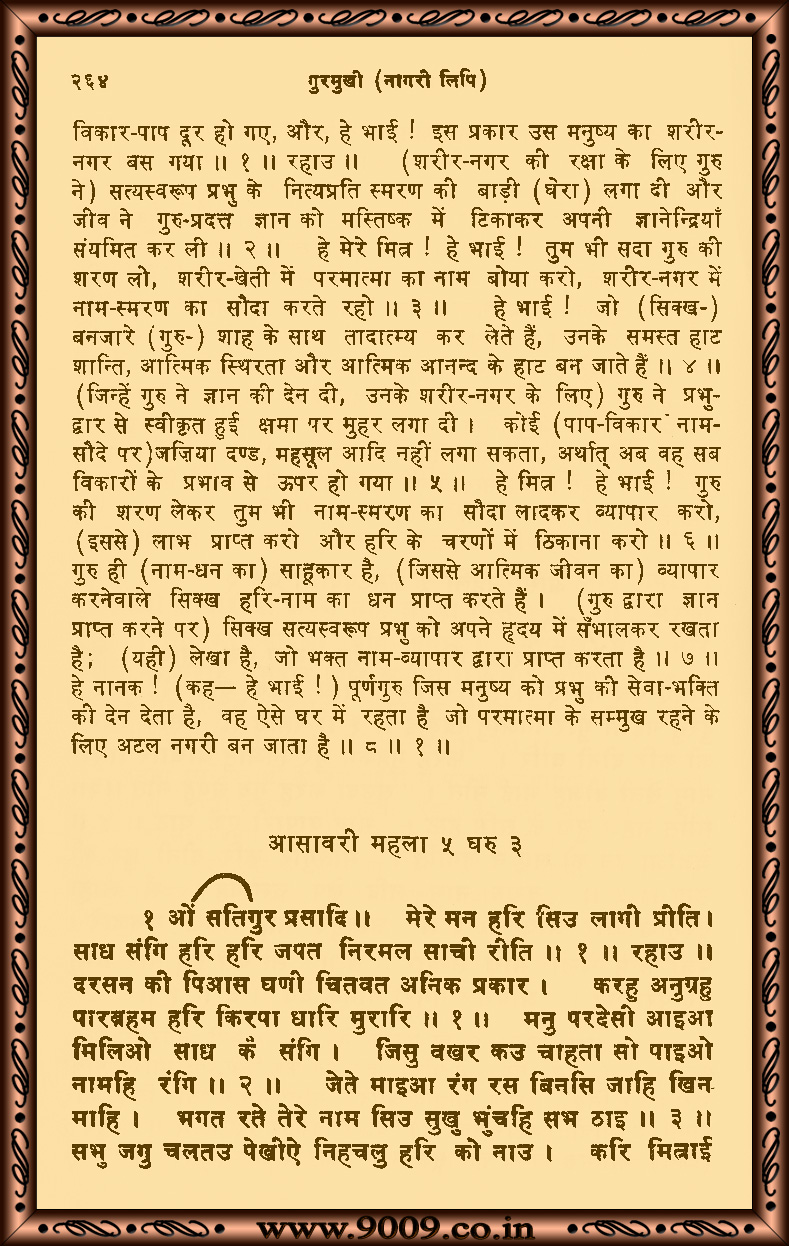 २६४ गुरमुखी (नागरी लिपि)
विकार-पाप दूर हो गए, और, हे भाई ! इस प्रकार उस मनुष्य का शरीर-
नगर बस गया ॥ १ ॥ रहाउ ॥ (शरीर-नगर की रक्षा के लिए गुरु
ने) सत्यस्वरूप प्रभु के नित्यप्रति स्मरण की बाड़ी (घेरा) लगा दी और
जीव ने गुरु-प्रदत्त ज्ञान को मस्तिष्क में टिकाकर अपनी ज्ञानेन्द्रियाँ
संयमित कर ली ॥ २ ॥ हे मेरे मित्र ! हे भाई ! तुम भी सदा गुरु की
शरण लो, शरीर-खेती में परमात्मा का नाम बोया करो, शरीर-नगर में
नाम-स्मरण का सौदा करते रहो ॥ ३ ॥ हे भाई ! जो (सिक्ख-)
बनजारे (गुरु-) शाह के साथ तादात्म्य कर लेते हैं, उनके समस्त हाट
शान्ति, आत्मिक स्थिरता और आत्मिक आनन्द के हाट बन जाते हैं ॥ ४ ॥
(जिन्हें गुरु ने ज्ञान की देन दी, उनके शरीर-नगर के लिए) गुरु ने प्रभु-
द्वार से स्वीकृत हुई क्षमा पर मुहर लगा दी । कोई (पाप-विकार नाम-
सौदे पर)जज़िया दण्ड, महसूल आदि नहीं लगा सकता, अर्थात् अब वह सब
विकारों के प्रभाव से ऊपर हो गया ॥ ५ ॥ हे मित्र ! हे भाई ! गुरु
की शरण लेकर तुम भी नाम-स्मरण का सौदा लादकर व्यापार करो,
(इससे) लाभ प्राप्त करो और हरि के चरणों में ठिकाना करो ॥ ६ ॥
गुरु ही (नाम-धन का) साहूकार है, (जिससे आत्मिक जीवन का) व्यापार
करनेवाले सिक्ख हरि-नाम का धन प्राप्त करते हैं । (गुरु द्वारा ज्ञान
प्राप्त करने पर) सिक्ख सत्यस्वरूप प्रभु को अपने हृदय में सँभालकर रखता
है; (यही) लेखा है, जो भक्त नाम-व्यापार द्वारा प्राप्त करता है ॥ ७ ॥
हे नानक ! (कह— हे भाई ! ) पूर्णगुरु जिस मनुष्य को प्रभु की सेवा-भक्ति
की देन देता है, वह ऐसे घर में रहता है जो परमात्मा के सम्मुख रहने के
लिए अटल नगरी बन जाता है ॥ ८ ॥ १ ॥
आसावरी महला ५ घरु ३
१ ओं सतिगुर प्रसादि ॥ मेरे मन हरि सिउ लागी प्रीति ।
साध संगि हरि हरि जपत निरमल साची रीति ॥ १ ॥ रहाउ ॥
दरसन की पिआस घणी चितवत अनिक प्रकार । करहु अनुग्रहु
पारब्रहम हरि किरपा धारि मुरारि ॥ १ ॥ मनु परदेसी आइआ
मिलिओ साध कै संगि । जिसु वखर कउ चाहता सो पाइओ
नामहि रंगि ॥ २ ॥ जेते माइआ रंग रस बिनसि जाहि खिन
माहि । भगत रते तेरे नाम सिउ सुखु भुंचहि सभ ठाइ ॥ ३ ॥
सभु जगु चलतउ पेखीऐ निहचलु हरि को नाउ । करि मित्राई
www.9009.co.in